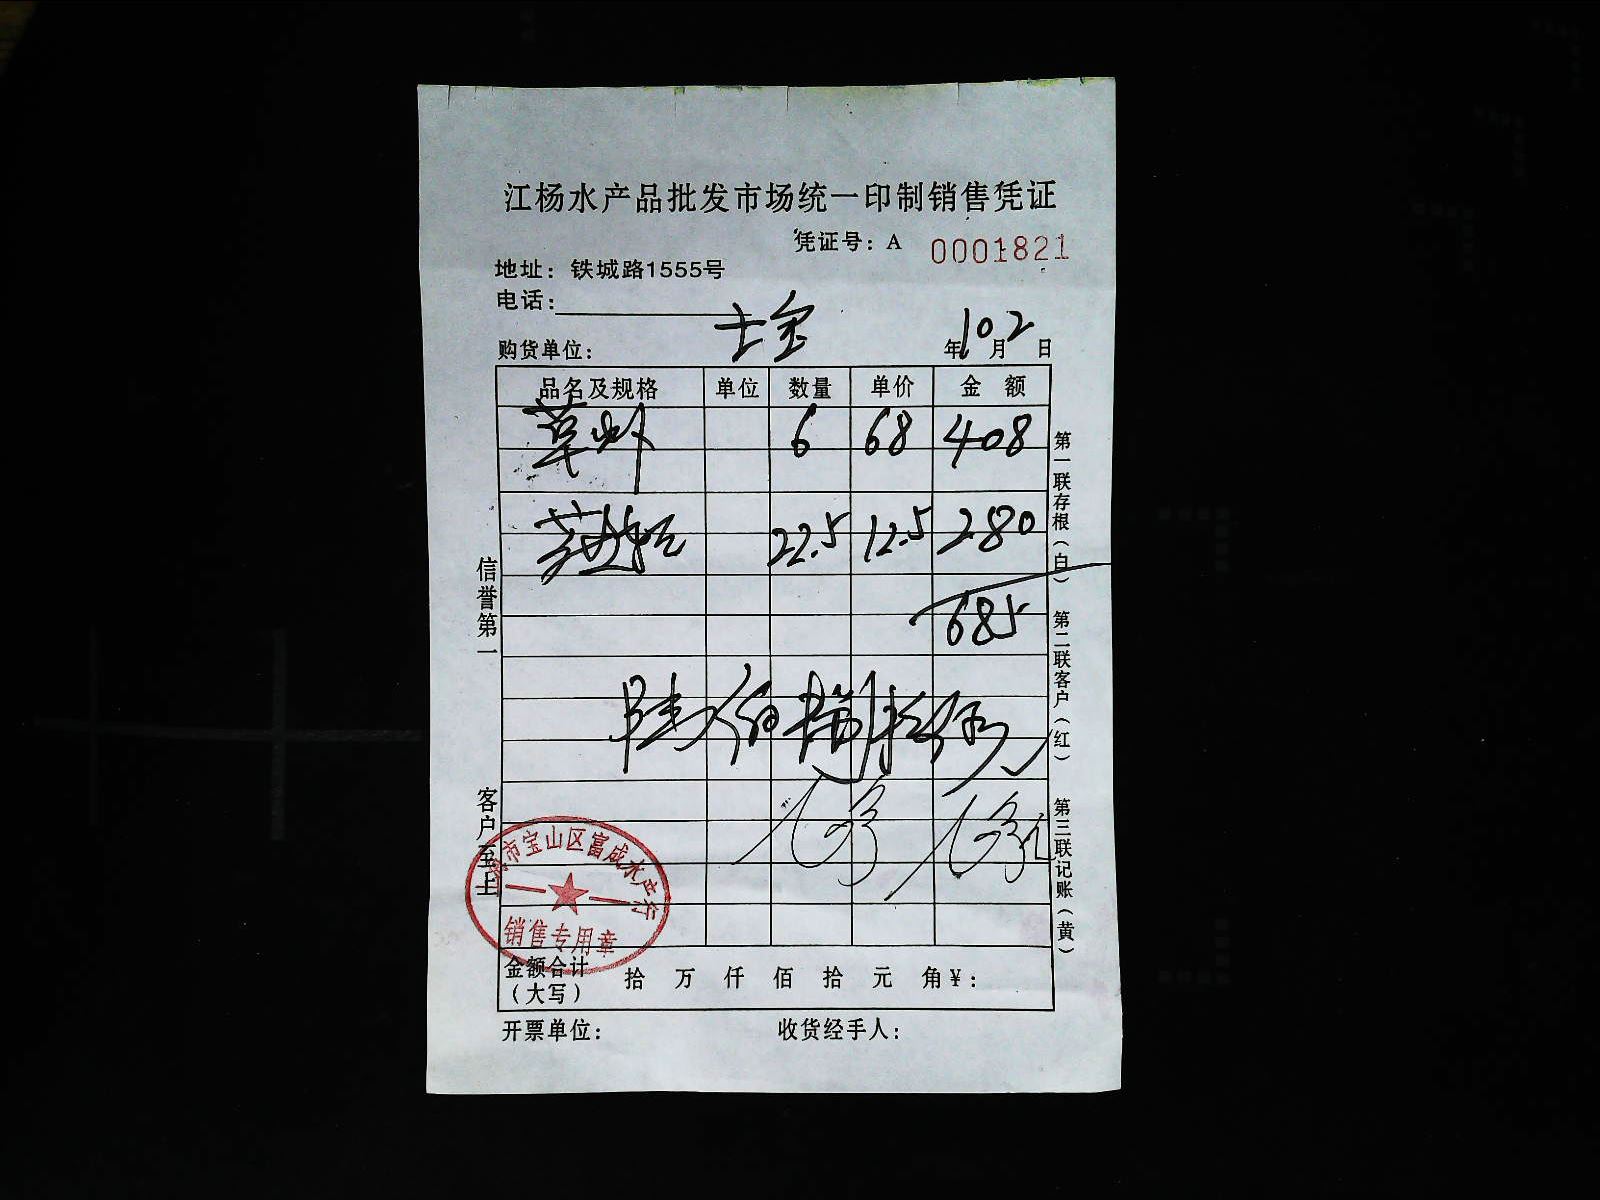 江杨水产品批发市场统一印制销售凭证
凭证号：A 0001821
地址：铁城路1555号
电话：
购货单位： 士宝 年10月2日
品名及规格 单位 数量 单价 金 额
草虾 6 68 408
22.5 12.5 280
685
陆佰捌拾
信誉第一
客户至上
第一联存根（白）
第二联客户（红）
第三联记账（黄）
市宝山区富成水产行
销售专用章
金额合计
（大写） 拾 万 仟 佰 拾 元 角 ¥：
开票单位： 收货经手人：